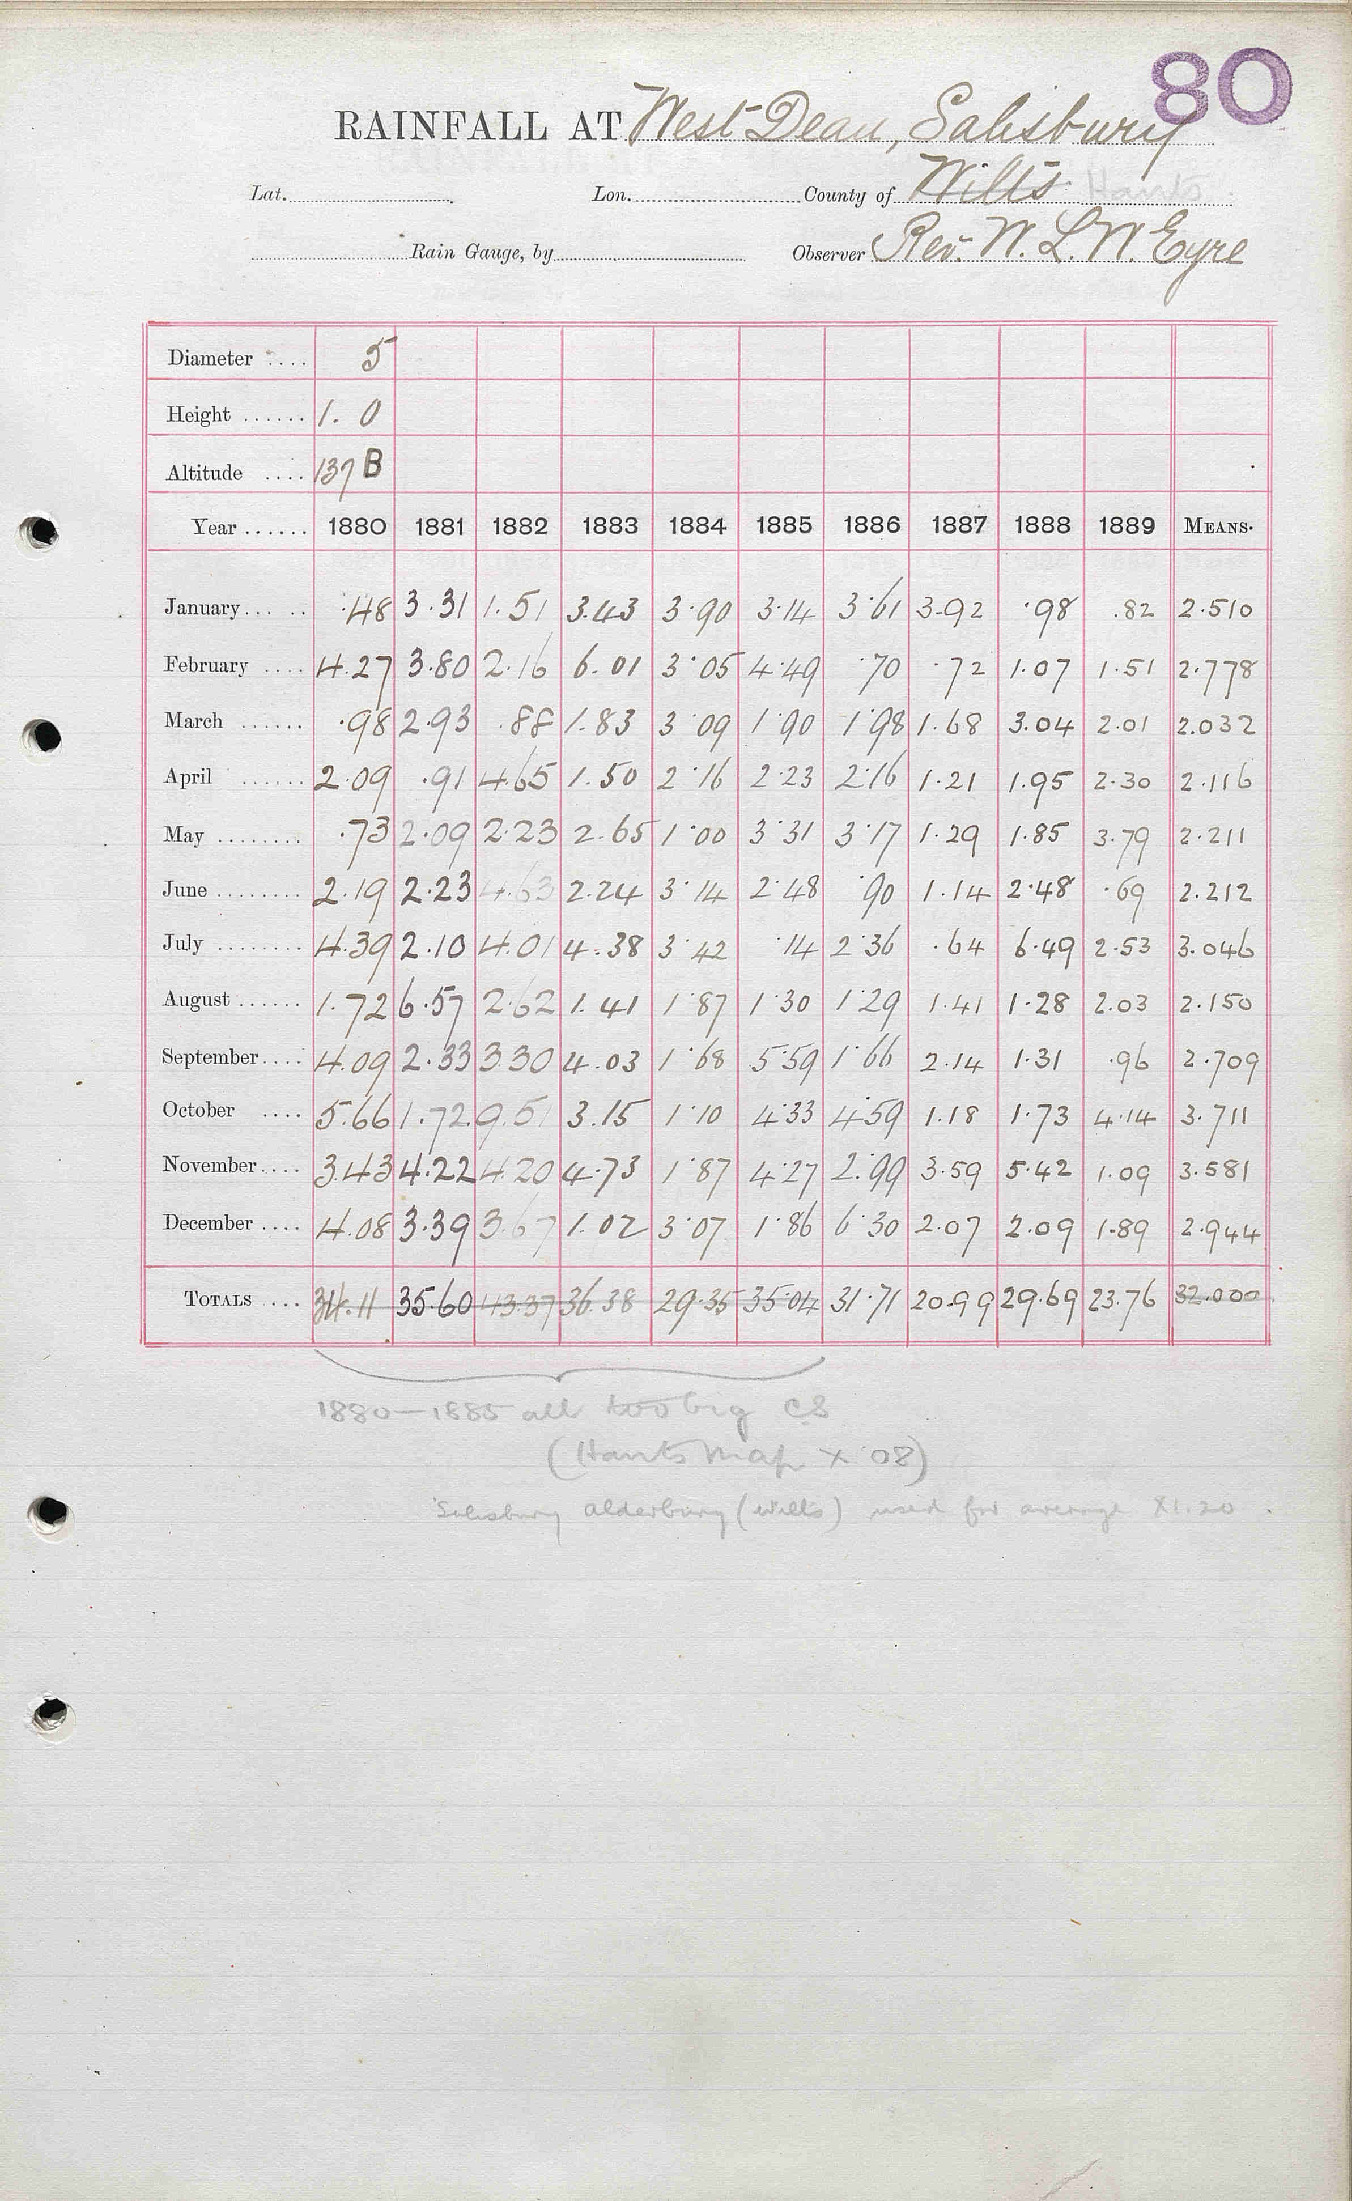 80
RAINFALL AT West Dean, Salisbury
Lat. Lon. County of Wilts Hants
Rain Gauge, by Observer Rev. W. L. W. Eyre
Diameter .... 5
Height ...... 1. 0
Altitude .... 137 B
Year ...... 1880 1881 1882 1883 1884 1885 1886 1887 1888 1889 MEANS.
January... .. .48 3.31 1.51 3.43 3.90 3.14 3.61 3.92 .98 .82 2.510
February .... 4.27 3.80 2.16 6.01 3.05 4.49 .70 .72 1.07 1.51 2.778
March ...... .98 2.93 .88 1.83 3 09 1.90 1.98 1.68 3.04 2.01 2.032
April ...... 2.09 .91 4.65 1.50 2.16 2.23 2.16 1.21 1.95 2.30 2.116
May ........ .73 2.09 2.23 2.65 1.00 3.31 3.17 1.29 1.85 3.79 2.211
June ........ 2.19 2.23 4.63 2.24 3.14 2.48 .90 1.14 2.48 .69 2.212
July ........ 4.39 2.10 4.01 4.38 3.42 .14 2.36 .64 6.49 2.53 3.046
August ...... 1.72 6.57 2.62 1.41 1.87 1.30 1.29 1.41 1.28 2.03 2.150
September.... 4.09 2.33 3.30 4.03 1.68 5.59 1.66 2.14 1.31 .96 2.709
October .... 5.66 1.72 9.51 3.15 1.10 4.33 4.59 1.18 1.73 4.14 3.711
November.... 3.43 4.22 4.20 4.73 1.87 4.27 2.99 3.59 5.42 1.09 3.581
December .... 4.08 3.39 3.67 1.02 3.07 1.86 6.30 2.07 2.09 1.89 2.944
TOTALS .... 34.11 35.60 43.37 36.38 29.35 35.04 31.71 20.99 29.69 23.76 32.000
1880-1885 all too big CS
(Hants Map x .08)
Salisbury Alderbury (Wilts) used for average X1.20